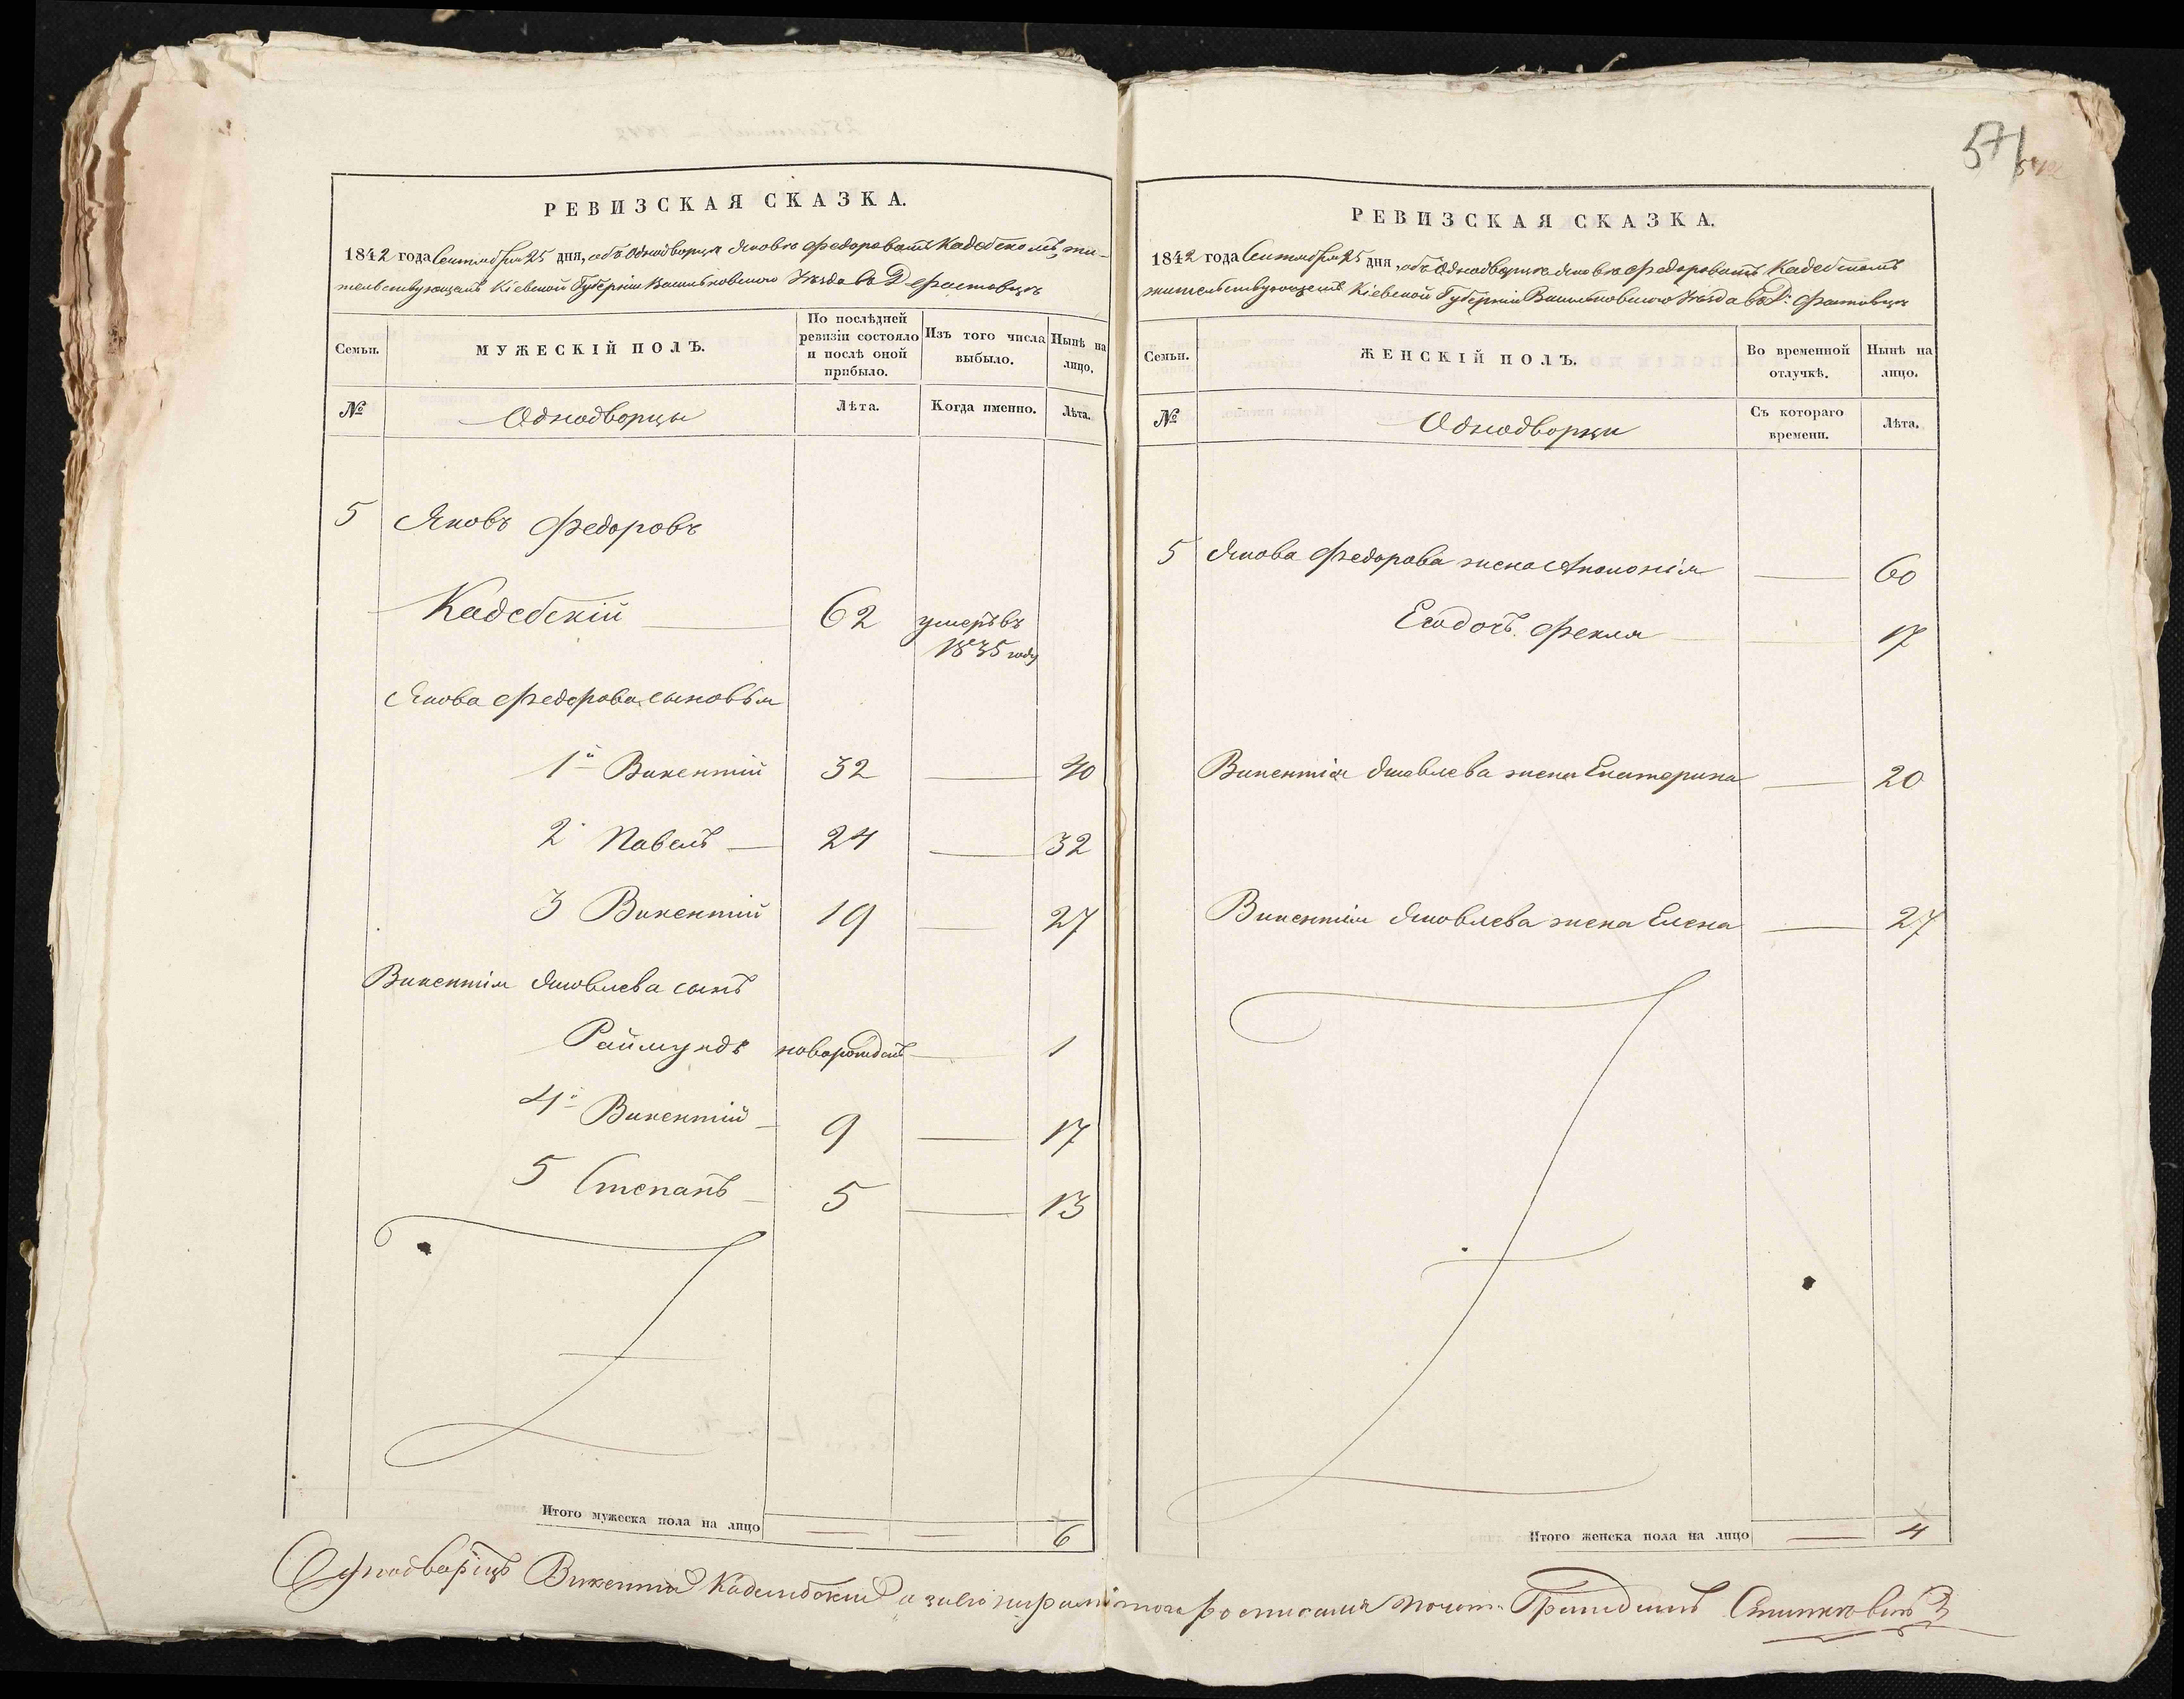 57
РЕВИЗСКАЯ СКАЗКА.
1842 года Сентября 25 дня, объ Однодворцѣ Яковѣ Федоровомъ Кадебскомъ, жи-
тельствующемъ Кіевской Губерніи Васильковскаго Уѣзда въ Д. Фастовцѣ
Семьи.
МУЖЕСКІЙ ПОЛЪ.
По послѣдней ревизіи состояло и послѣ оной прибыло.
Изъ того числа выбыло.
Нынѣ на лицо.
№
Однодворцы
Лѣта.
Когда именно.
Лѣта.
5 Яковъ Федоровъ
Кадебскій 62 умеръ въ
1835 году
Якова Федорова сыновья
1й Викентий 32 — 40
2 Павелъ — 24 — 32
3 Викентий 19 — 27
Викентія Яковлева сынъ
Раймундъ новорожден — 1
4й Викентий 9 — 17
5 Степанъ 5 — 13
Итого мужеска пола на лицо — — 6
РЕВИЗСКАЯ СКАЗКА.
1842 года Сентября 25 дня, объ Однодворцѣ Яковѣ Федоровомъ Кадебскомъ
жительствующемъ Кіевской Губерніи Васильковскаго Уѣзда въ Д. Фастовцѣ
Семьи.
ЖЕНСКІЙ ПОЛЪ.
Во временной отлучкѣ.
Нынѣ на лицо.
№
Однодворки
Съ котораго времени.
Лѣта.
5 Якова Федорова жена Аполонія — 60
Его дочь Фекла — 17
Викентія Яковлева жена Екатерина — 20
Викентія Яковлева жена Елена — 27
Итого женска пола на лицо — 4
Однодворецъ Викентий Кадембский а за него неграмотнаго росписался